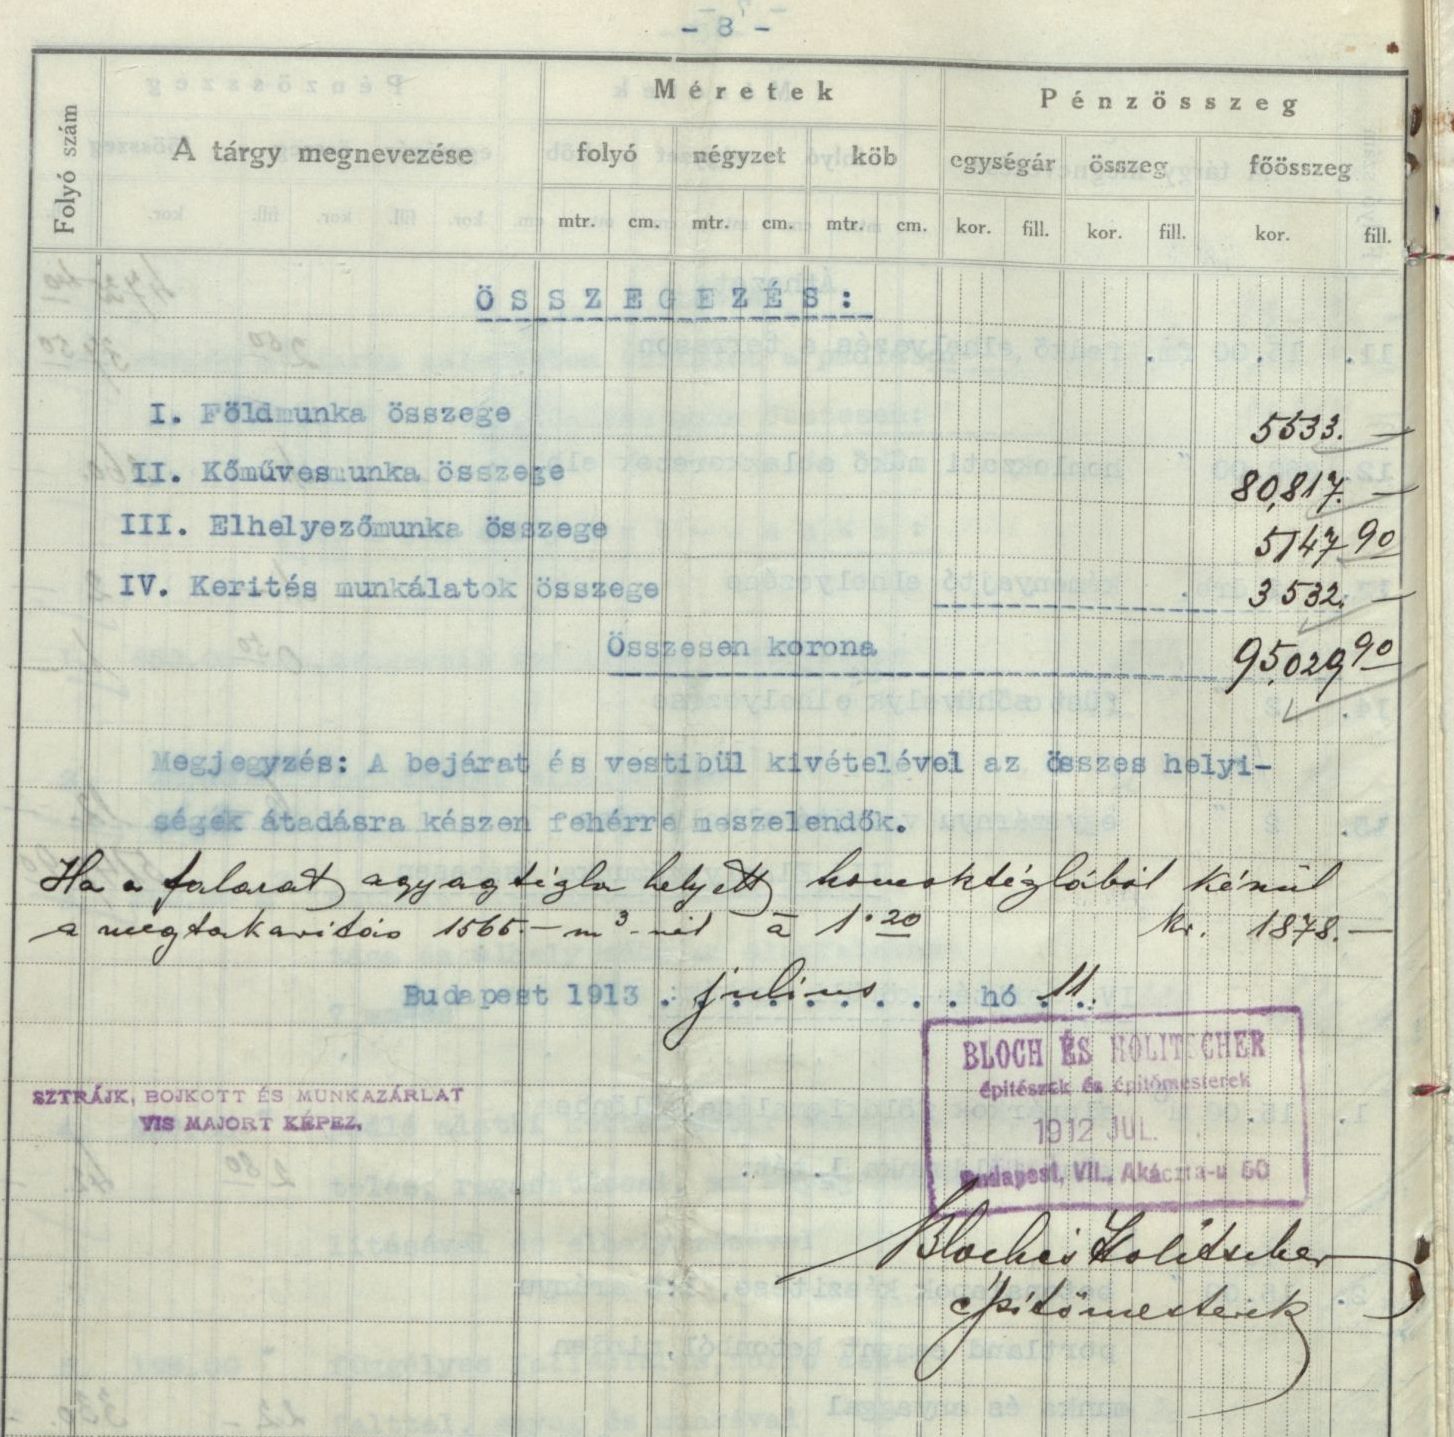 - 8 -
Folyó szám
A tárgy megnevezése
Méretek
Pénzösszeg
folyó négyzet köb egységár összeg főösszeg
mtr. cm. mtr. cm. mtr. cm. kor. fill. kor. fill. kor. fill.
ÖSSZEGEZÉS:
I. Földmunka összege 5533.—
II. Kőművesmunka összege 80,817.—
III. Elhelyezőmunka összege 5147 90
IV. Kerités munkálatok összege 3532.—
Összesen korona 95,029 90
Megjegyzés: A bejárat és vestibül kivételével az összes helyi-
ségek átadásra készen fehérre meszelendők.
Ha a falazat agyagtégla helyett homoktéglából készül
a megtakaritás 1565.— m³-nél à 1.20 kr. 1878.—
Budapest 1913 . julius . . . hó 11.
BLOCH ÉS HOLITSCHER
építészek és építőmesterek
1912 JUL.
Budapest, VII., Akáczfa-u 60
SZTRÁJK, BOJKOTT ÉS MUNKAZÁRLAT
VIS MAJORT KÉPEZ.
Bloch és Holitscher
építőmesterek